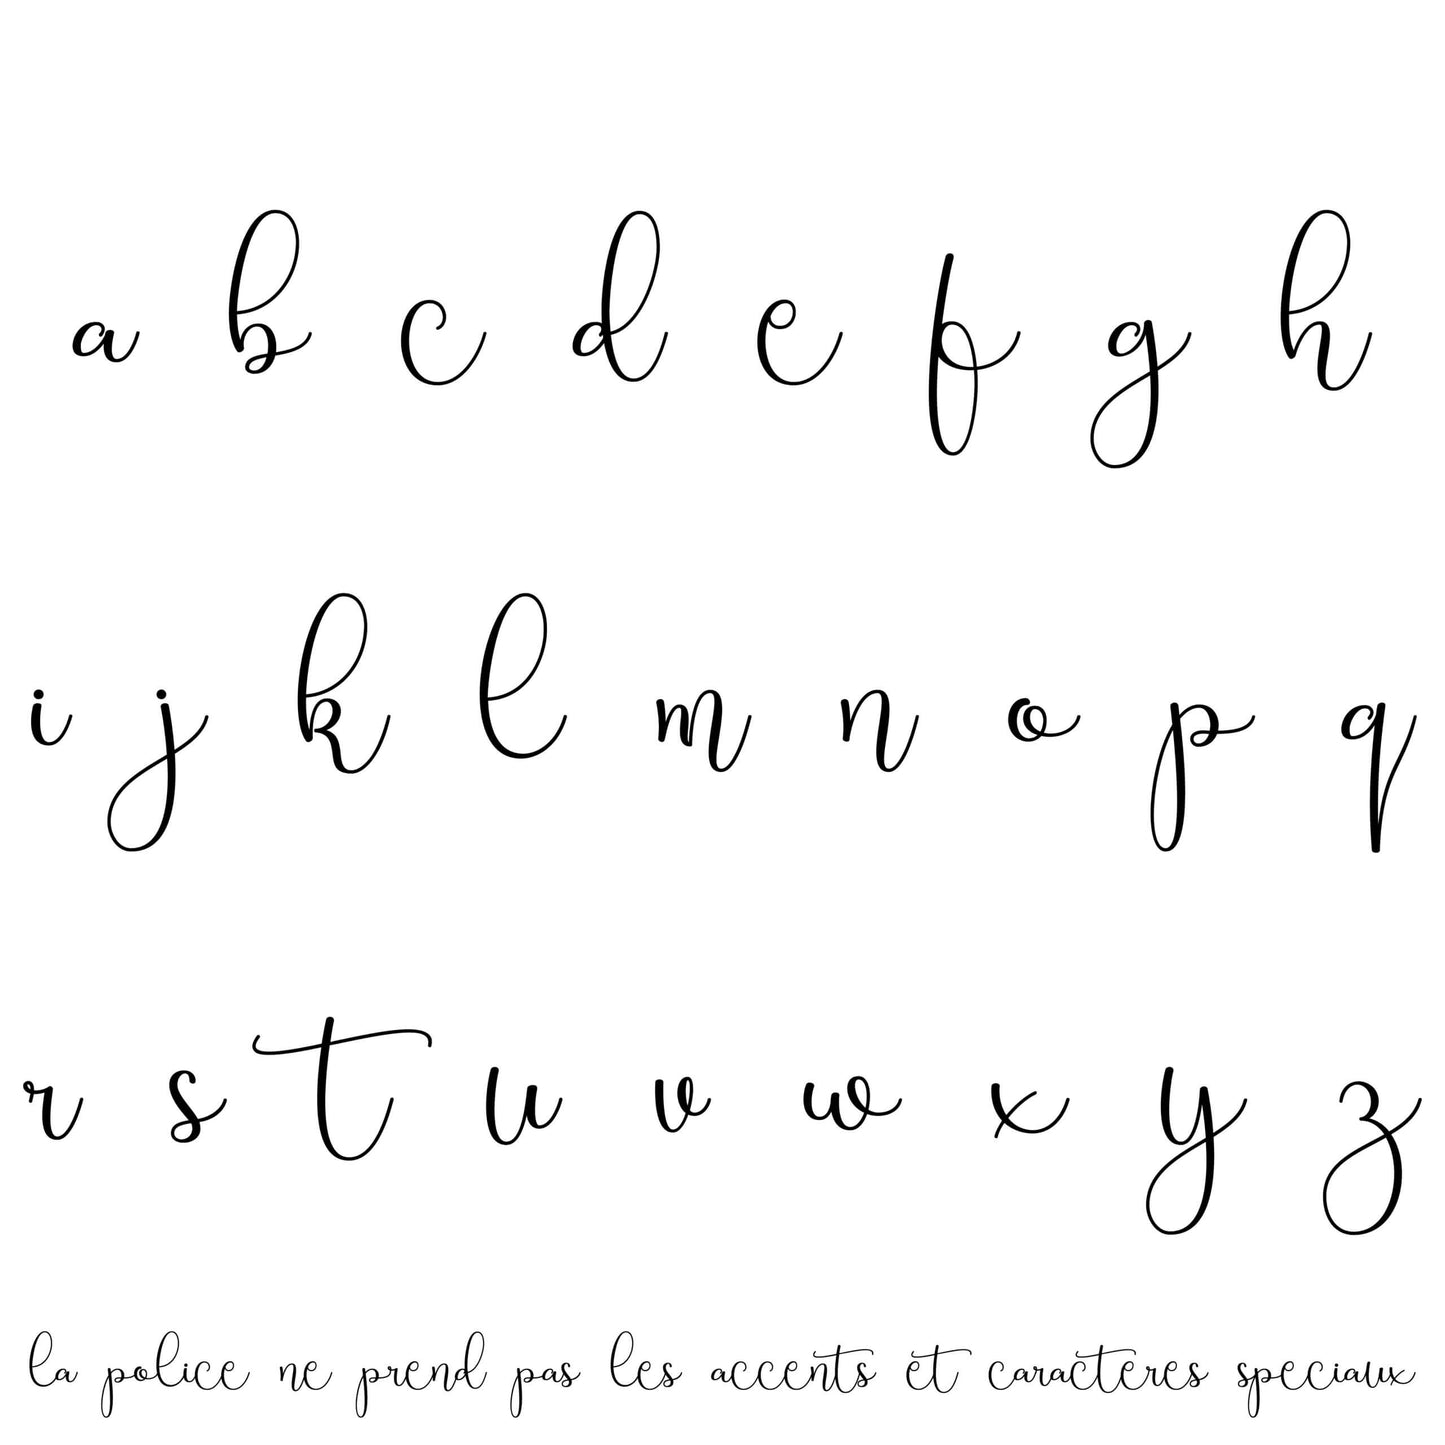 a b c d e f g h
i j k l m n o p q
r s t u v w x y z
la police ne prend pas les accents et caracteres speciaux